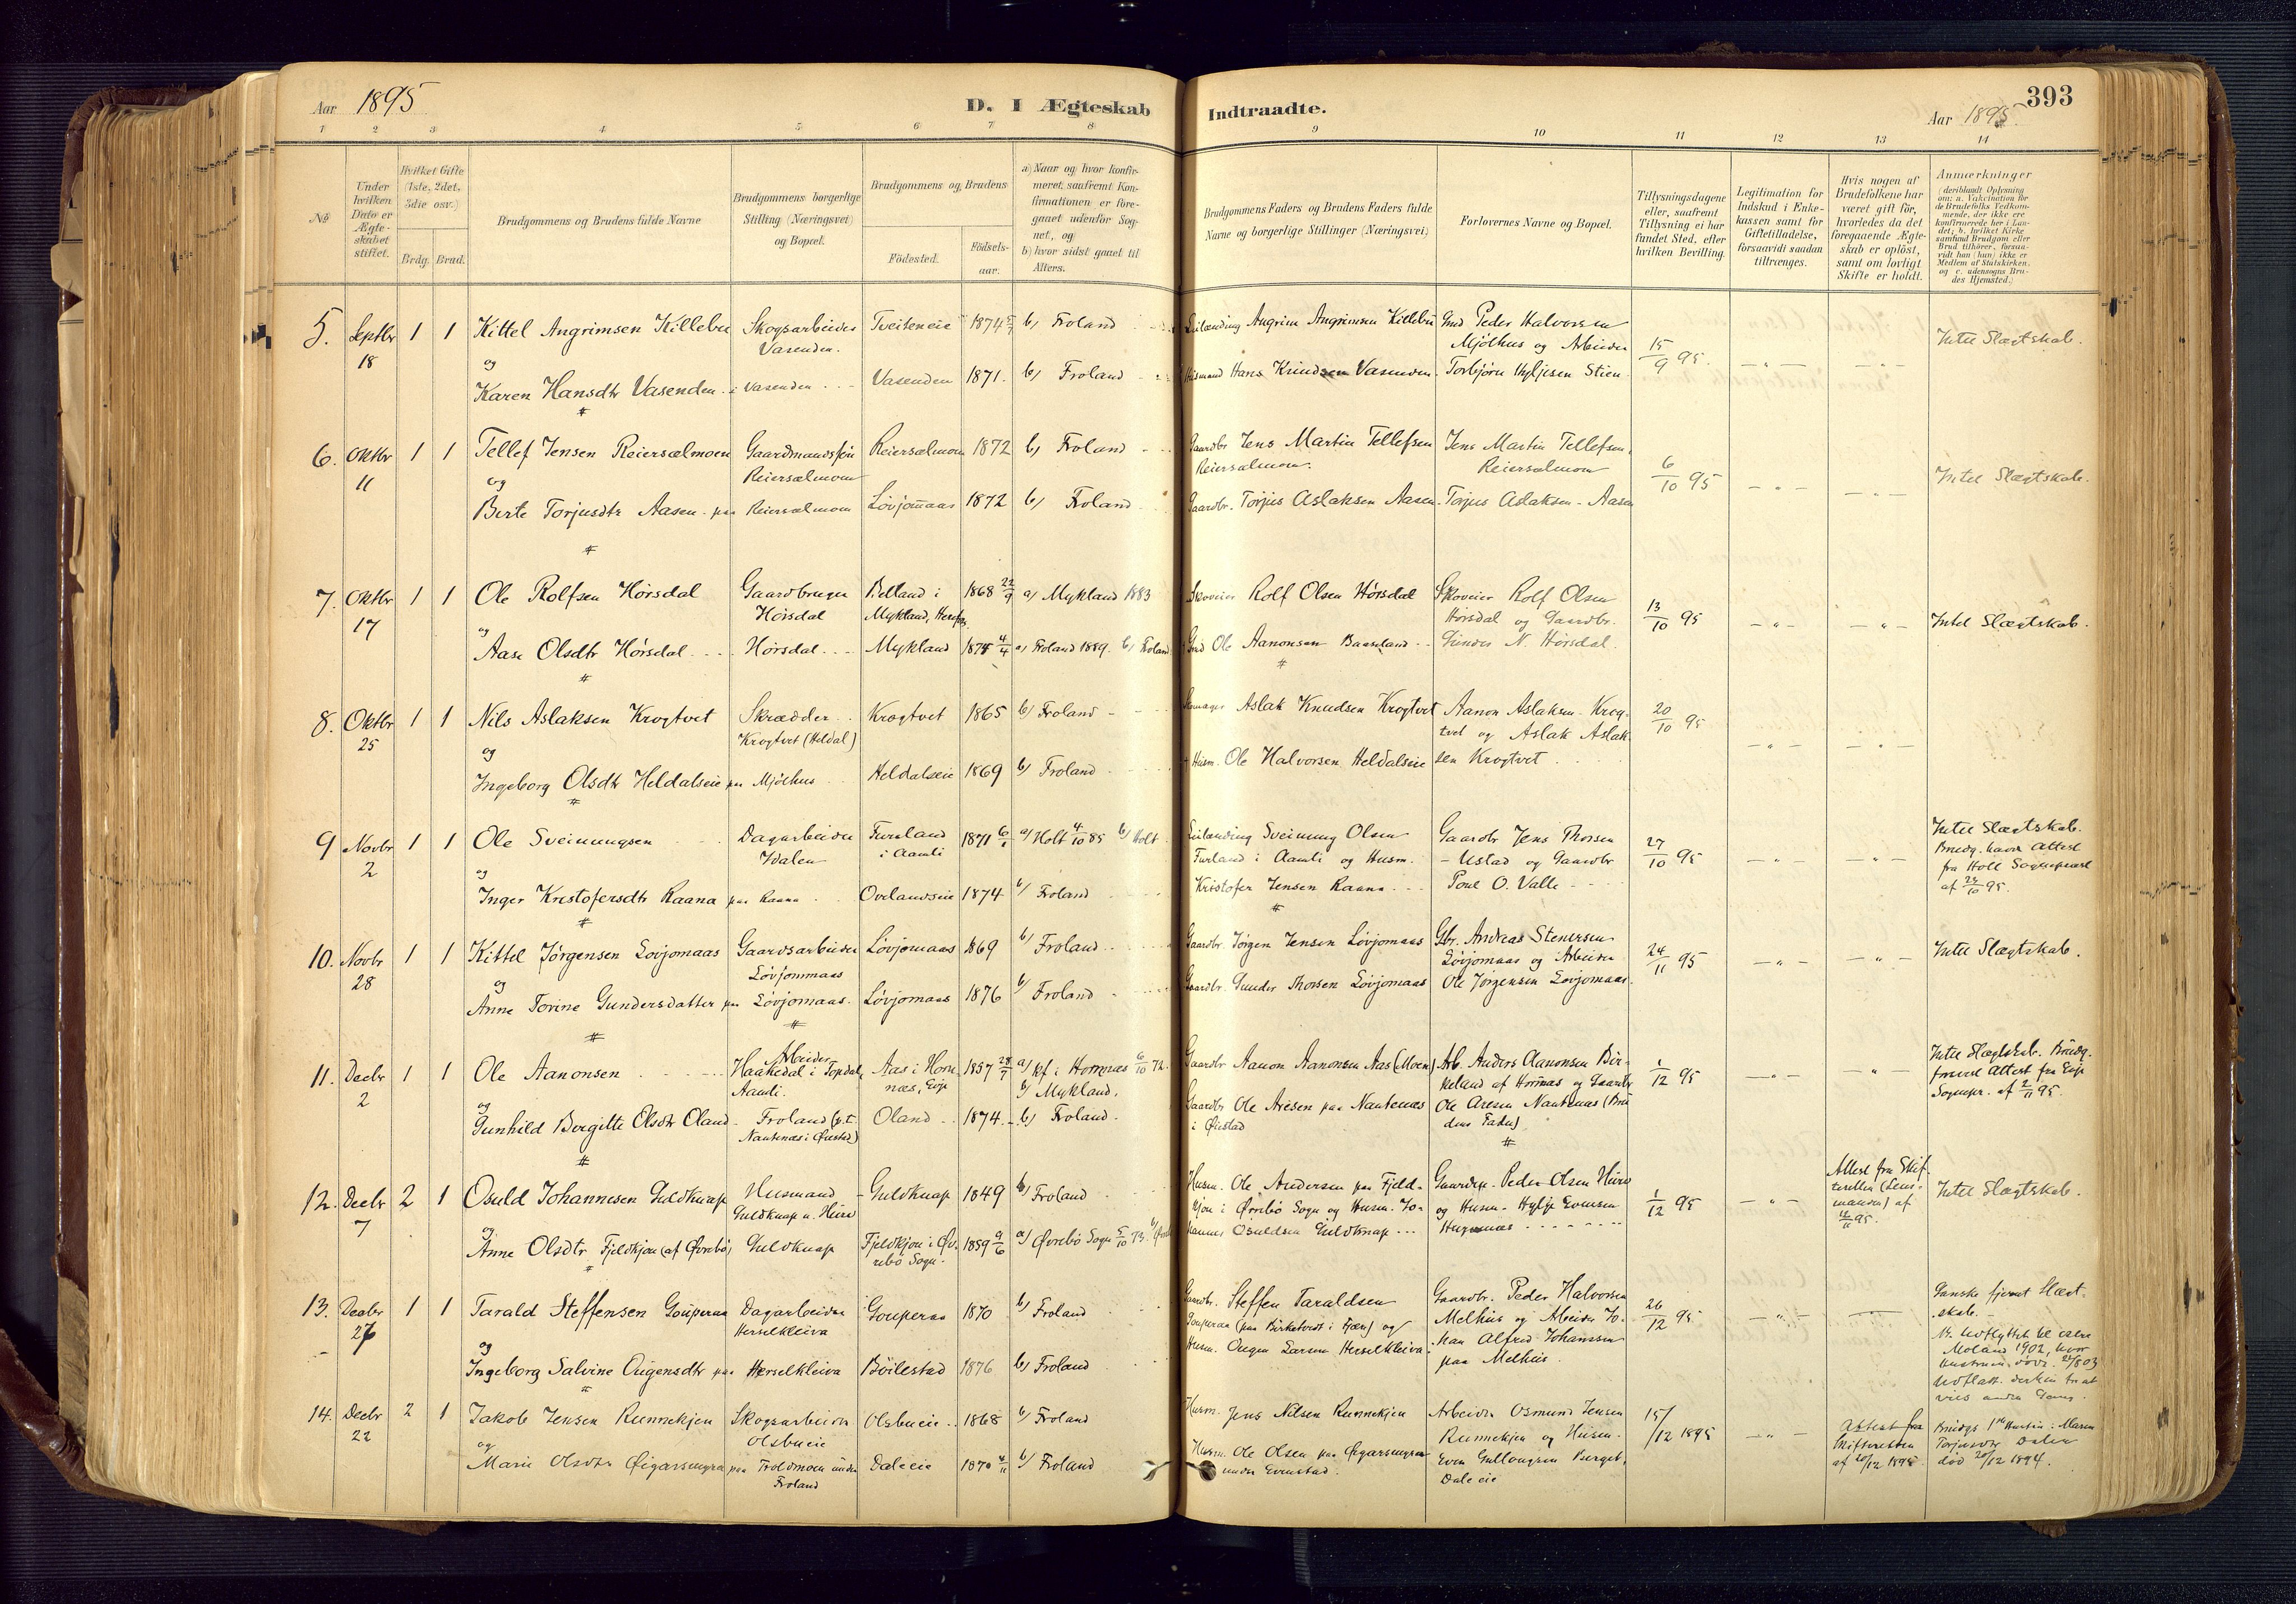 Aar 1895
D. I Ægteskab
Indtraadte.
Aar 1895
393
1 2 3 4 5 6 7 8 9 10 11 12 13 14
№
Under hvilken Dato er Ægteskabet stiftet.
Hvilket Gifte (1ste, 2det, 3die osv.)
Brdg. Brud.
Brudgommens og Brudens fulde Navne
Brudgommens borgerlige Stilling (Næringsvei) og Bopæl.
Brudgommens og Brudens
Fødested.
Fødselsaar.
a) Naar og hvor konfirmeret, saafremt Konfirmationen er foregaaet udenfor Sognet, og
b) hvor sidst gaaet til Alters.
Brudgommens Faders og Brudens Faders fulde Navne og borgerlige Stillinger (Næringsvei)
Forlovernes Navne og Bopæl.
Tillysningsdagene eller, saafremt Tillysning ei har fundet Sted, efter hvilken Bevilling.
Legitimation for Indskud i Enkekassen samt for Giftetilladelse, forsaavidt saadan tiltrænges.
Hvis nogen af Brudefolkene har været gift før, hvorledes da det foregaaende Ægteskab er opløst, samt om lovligt Skifte er holdt.
Anmærkninger
(deriblandt Oplysning om: a. Vakcination for de Brudefolks Vedkommende, der ikke ere konfirmerede her i Landet; b. hvilket Kirkesamfund Brudgom eller Brud tilhører, forsaavidt han (hun) ikke er Medlem af Statskirken, og c. udensogns Brudes Hjemsted.)
5. Septbr 18 1 1 Kittel Angrimsen Killebu Skogsarbeider Vasenden. Tveiteneie 1874 b) Froland
Leilænding Angrim Angrimsen Killebu Gmd Peder Halvorsen Mjølhus og Arbeider 15/9 95. Intet Slægtskab.
og
Karen Hansdtr Vasenden i Vasenden Vasenden 1871. b) Froland
Husmand Hans Knudsen Vasenden. Torbjørn Stien
6. Oktbr 11 1 1 Tellef Jensen Reiersælmoen Gaardmandssøn Reiersælmoen Reiersælmoen 1872 b) Froland
Gaardbr Jens Martin Tellefsen Reiersælmoen. Jens Martin Tellefsen, Reiersælmoen 6/10 95 Intet Slægtskab.
og
Berte Torjusdtr Aasen paa Reiersælmoen Løvjomaas 1872 b) Froland
Gaardbr. Torjus Aslaksen Aasen. Torjus Aslaksen Aasen
7. Oktbr 17 1 1 Ole Rolfsen Hørsdal Gaardbruger Hørsdal Belland i Mykland, 1868 22/9 a) Mykland 1883
Skoveier Rolf Olsen Hørsdal Skoveier Rolf Olsen Hørsdal og Gaardbr. 13/10 95 Intet Slægtskab.
og
Aase Olsdtr Hørsdal Hørsdal Mykland 1875 4/4 a) Froland 1889. b) Froland
Gmd Ole Aanonsen Baaseland Gunder N. Hørsdal.
8. Oktbr 25 1 1 Nils Aslaksen Krogtvet Skrædder Krogtvet (Heldal) Krogtvet 1865 b) Froland
Aslak Knudsen Krogtvet Aanon Aslaksen Krogtvet og Aslak Aslaksen Krogtvet 20/10 95
og
Ingeborg Olsdtr Heldalseie paa Mjølhus Heldalseie 1869 b) Froland
Husm. Ole Halvorsen Heldalseie
9 Novbr 2 1 1 Ole Sveinungsen Dagarbeider Furland i Aamli 1871 a) Holt 4/10 85 b) Holt
Leilænding Sveinung Olsen Furland i Aamli og Husm. Gaardbr Jens Thorsen Ustad og Gaardbr 27/10 95 Intet Slægtskab. Brudg. havde Attest fra Holt Sognepræst af 95.
og
Inger Kristofersdtr Raana paa Raana 1874 b) Froland
Kristofer Jensen Raana Poul O. Valle
10. Novbr 28 1 1 Kittel Jørgensen Løvjomaas Gaardsarbeider Løvjommaas Løvjomaas 1869 b) Froland
Gaardbr. Jørgen Jensen Løvjomaas Gbr. Andreas Stenersen Løvjomaas og Arbeider 24/11 95 Intet Slægtskab.
og
Anne Torine Gundersdatter paa Løvjomaas. Løvjomaas 1876 b) Froland
Gaardbr. Gunder Thorsen Løvjomaas Ole Jørgensen Løvjomaas.
11. Decbr 2 1 1 Ole Aanonsen Arbeider Haakedal i Topdal, Aamli. Aas i Hornnæs, Evje 1857 28/7 a) Kf. i Hornnæs 6/10 72. b) Mykland.
Gaardbr Aanon Aanonsen Aas (Moen) Arb. Anders Aanonsen Birkeland af Hornnæs og Gaardbr 1/12 95 Intet Slægtskab. Brudg. foreviste Attest fra Evje Sognepr. af 2/11 95.
og
Gunhild Bergitte Olsdtr Oland Froland (p.t. Nautenæs i Øiestad) Oland 1874. b) Froland.
Gaardbr Ole Aresen paa Nautenæs i Øiestad Ole Aresen Nautenæs (Brudens Fader)
12. Decbr 7 2 1 Osuld Johannesen Guldknap Husmand Guldknap u. Guldknap 1849 b) Froland
Husm. Ole Andersen paa Fjeldkjøn i Øvrebø Sogn og Husm. Johannes Osuldsen Guldknap Peder Olsen og Husm. 1/12 95 Attest fra Skifteretten (Lensmanden) af 95. Intet Slægtskab.
og
Anne Olsdtr Fjeldkjøn (af Øvrebø) Guldknap Fjeldkjøn i Øvrebø Sogn. 1859 9/6 a) Øvrebø Sogn 5/10 73.
13. Decbr 27 1 1 Tarald Steffensen Gouperaa Dagarbeider Herselkleiva Gouperaa 1870 b) Froland
Gaardbr. Steffen Taraldsen Gouperaa (paa Birketvedt i Fjære) og Husm. Ougen Larsen Herselkleiva Gaardbr. Peder Halvorsen Melhus og Arbeider Johan Alfred Johanssen paa Melhus. 26/12 95 Ganske fjernt Slægtskab.
Utflyttet til østre Moland 1902, hvor Hustruen døde
og
Ingeborg Salvine Ougensdtr paa Herselkleiva Bøilestad 1876 b) Froland
14. Decbr 22 2 1 Jakob Jensen Runnekjen Skogsarbeider Olsbueie Olsbueie 1868 b) Froland
Husm. Jens Nilsen Runnekjen Arbeider Osmund Jensen Runnekjen og Husm. 15/12 1895 Attest fra Skifteretten af 20/12 1895. Brudgs 1ste Hustru: Maren Torjusdtr Dalen død 20/12 1894.
og
Marie Olsdtr Øigarsmyra paa Froldmoen under Froland Daleeie 1870 4/11 b) Froland
Husm. Ole Olsen paa Øigarsmyra under Evenstad. Even Berget, Daleeie